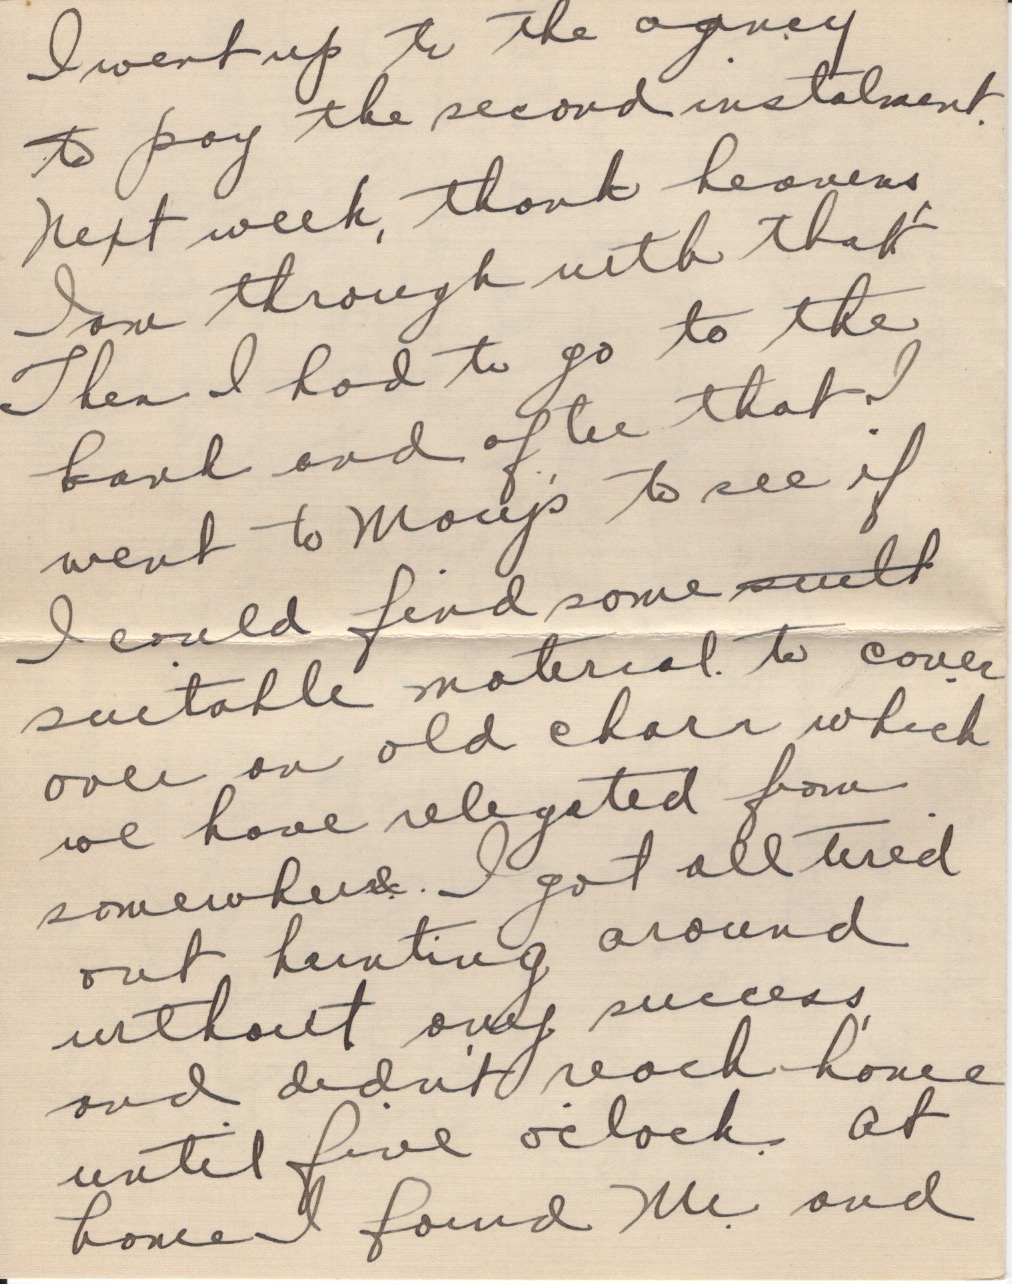 I went up to the agency
to pay the second instalment.
Next week, thank heavens,
I am through with that.
Then I had to go to the
bank and after that I
went to Macy's to see if
I could find some suitt
suitable material to cover
over an old chair which
we have relegated from
somewhere. I got all tired
out hunting around
without any success,
and didn't reach home
until five o'clock. At
home I found Mr. and